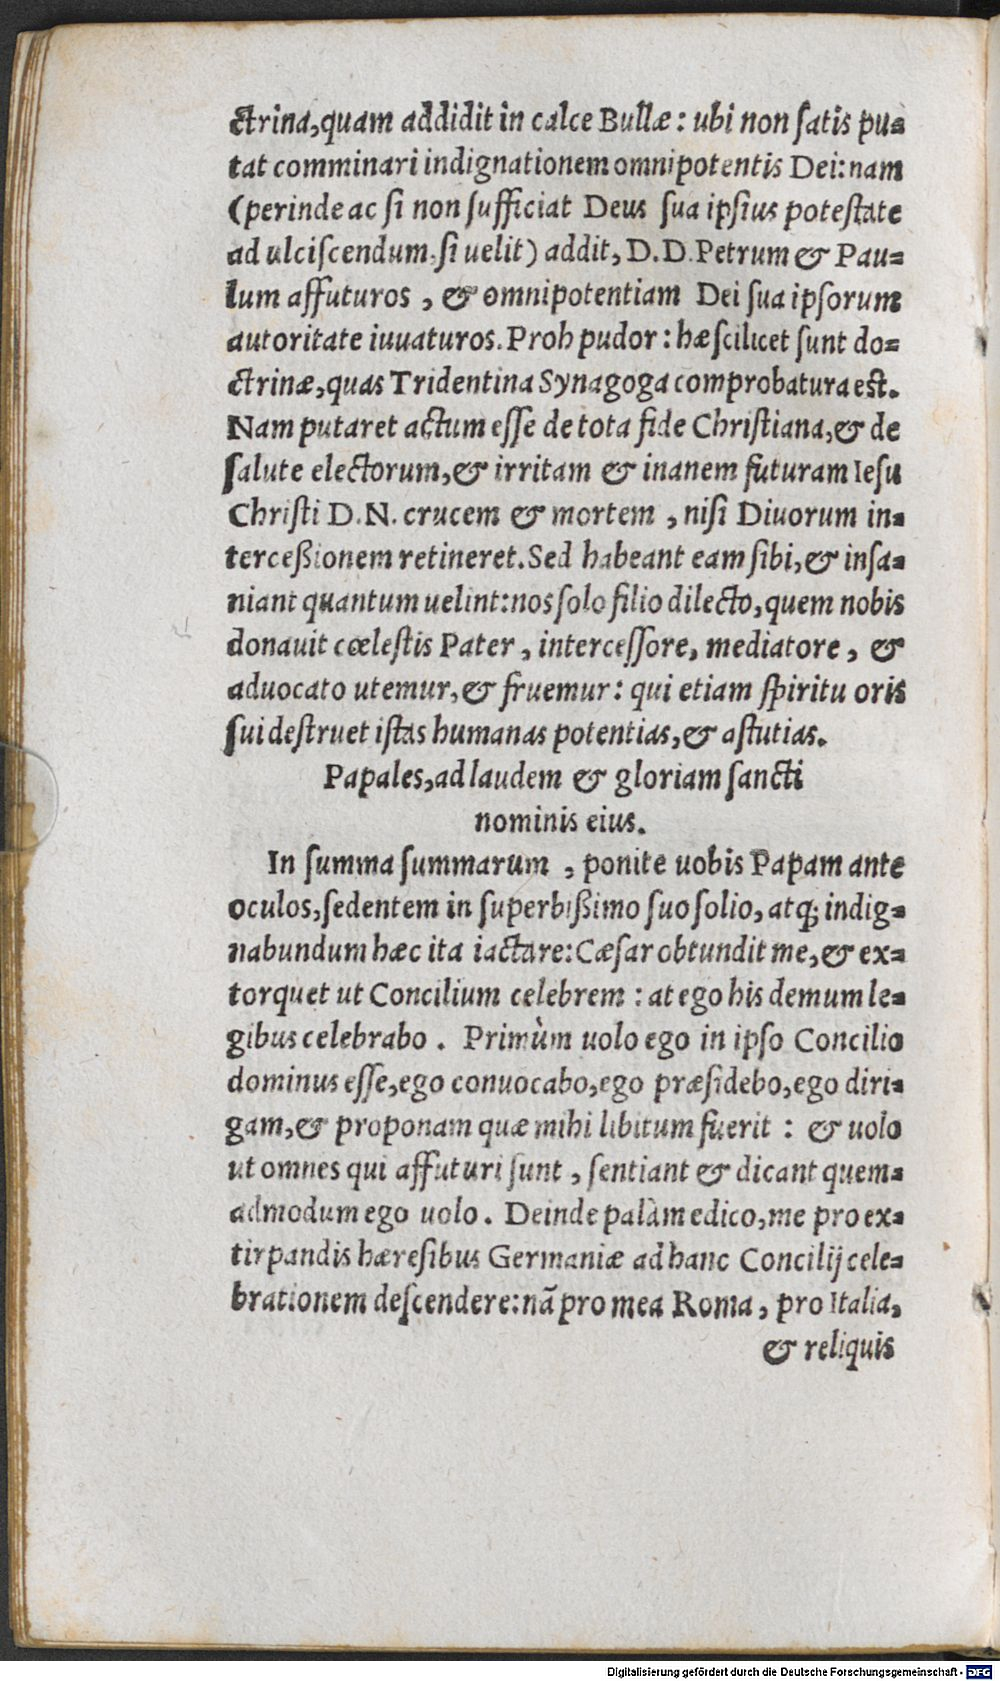 ctrina, quam addidit in calce Bullæ: ubi non ſatis pu=
tat comminari indignationem omnipotentis Dei: nam
(perinde ac ſi non ſufficiat Deus ſua ipſius poteſtate
ad ulciſcendum, ſi uelit) addit, D. D. Petrum & Pau=
lum affuturos, & omnipotentiam Dei ſua ipſorum
autoritate iuuaturos. Proh pudor: hæ ſcilicet ſunt do=
ctrinæ, quas Tridentina Synagoga comprobatura est.
Nam putaret actum eſſe de tota fide Chriſtiana, & de
ſalute electorum, & irritam & inanem futuram Ieſu
Chriſti D. N. crucem & mortem, niſi Diuorum in=
terceßionem retineret. Sed habeant eam ſibi, & inſa=
niant quantum uelint: nos ſolo filio dilecto, quem nobis
donauit cœleſtis Pater, interceſſore, mediatore, &
aduocato utemur, & fruemur: qui etiam ſpiritu oris
ſui deſtruet iſtas humanas potentias, & aſtutias.
Papales, ad laudem & gloriam ſancti
nominis eius.
In ſumma ſummarum, ponite uobis Papam ante
oculos, ſedentem in ſuperbißimo ſuo ſolio, atq; indig=
nabundum hæc ita iactare: Cæſar obtundit me, & ex=
torquet ut Concilium celebrem: at ego his demum le=
gibus celebrabo. Primùm uolo ego in ipſo Concilio
dominus eſſe, ego conuocabo, ego præſidebo, ego diri=
gam, & proponam quæ mihi libitum fuerit: & uolo
ut omnes qui affuturi ſunt, ſentiant & dicant quem=
admodum ego uolo. Deinde palàm edico, me pro ex=
tirpandis hæreſibus Germaniæ ad hanc Concilij cele=
brationem deſcendere: nã pro mea Roma, pro Italia,
& reliquis
Digitalisierung gefördert durch die Deutsche Forschungsgemeinschaft - DFG